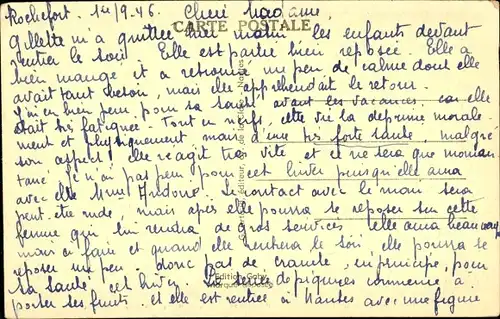 Rochefort. 1er 9.46. Chère Madame,
CARTE POSTALE
Gillette m'a quittée hier matin les enfants devant
rentrer le soir. Elle est partie bien reposée. Elle a
bien mangé et a retrouvé un peu de calme dont elle
avait tant besoin, mais elle appréhendait le retour.
J'ai eu bien peur pour sa santé avant les vacances car elle
était très fatiguée. Tout en nerfs, cette vie la déprime morale-
ment et physiquement mais d'une très forte santé, malgré
son aspect, elle réagit très vite et ce ne sera que momen-
tané. Je n'ai pas peur pour cet hiver puisqu'elle aura
avec elle Mme . Le contact avec le mari sera
peut-être rude, mais après elle pourra se reposer sur cette
femme qui lui rendra de gros services. Elle aura beaucoup
mais à faire et quand elle rentrera le soir elle pourra se
reposer un peu. donc pas de crainte, en principe, pour
sa santé, cet hiver. La série de piqures commence à
porter ses fruits. et elle est rentrée à Nantes avec une figure